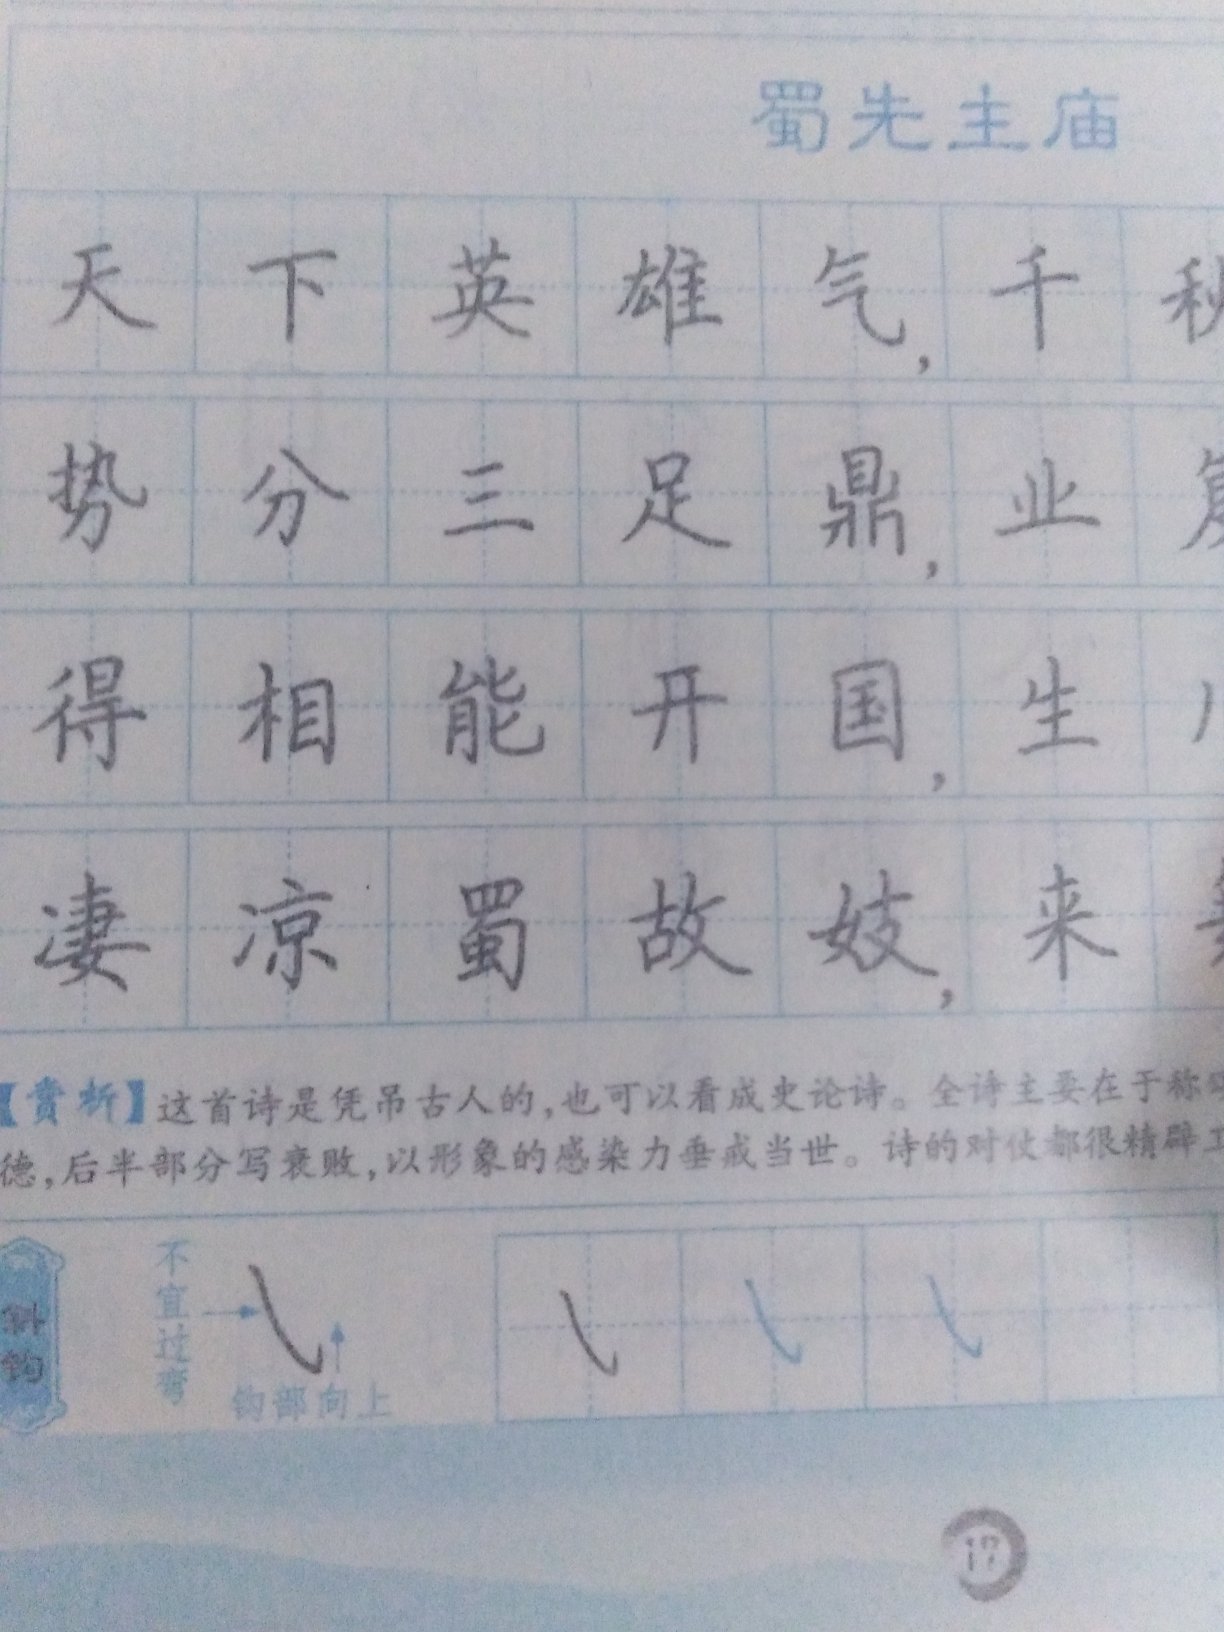 蜀先主庙
天下英雄气,千秋
势分三足鼎,业
得相能开国,生
凄凉蜀故妓,来
【赏析】这首诗是凭吊古人的,也可以看成史论诗。全诗主要在于称颂
德,后半部分写衰败,以形象的感染力垂戒当世。诗的对仗都很精辟工
斜钩
不宜过弯
钩部向上
17